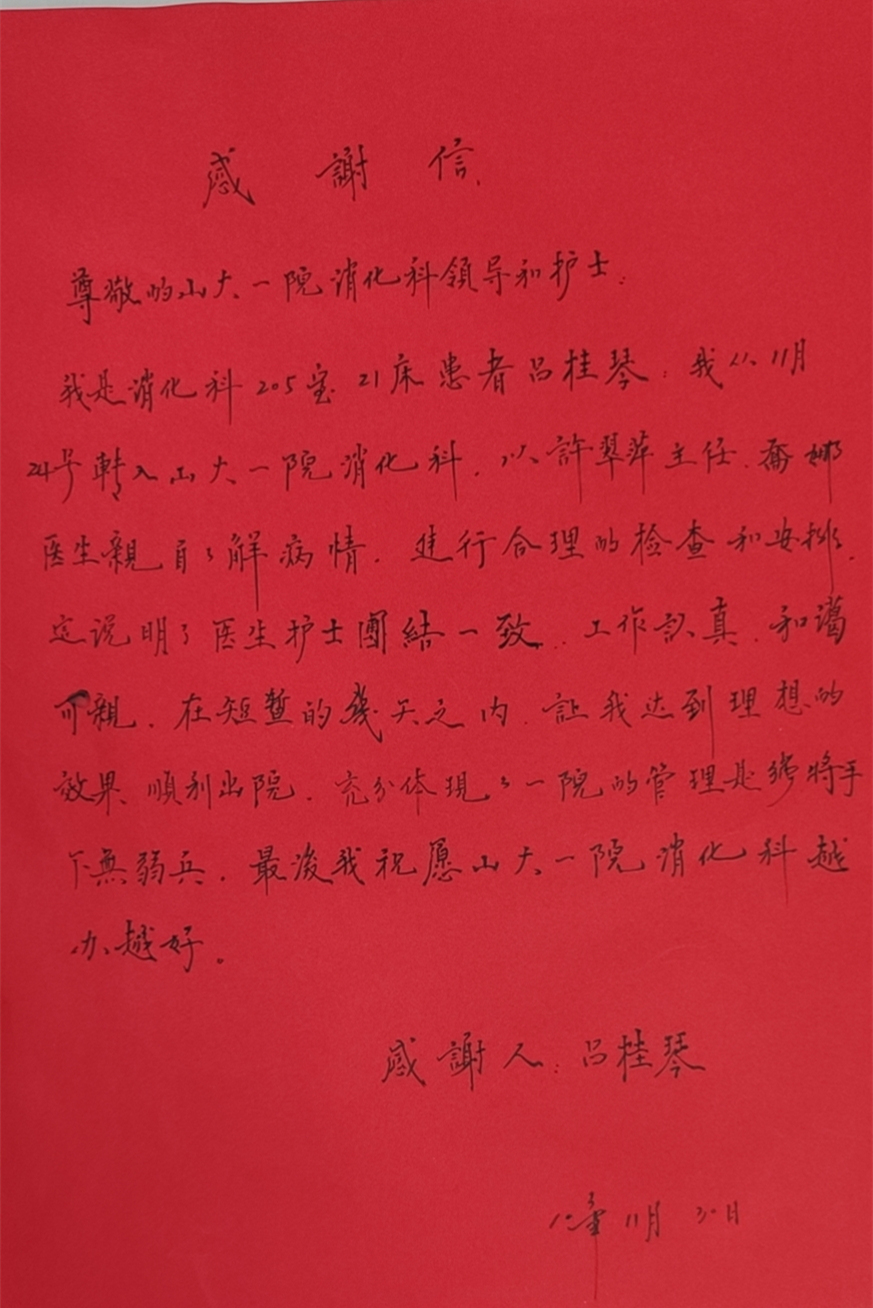 感謝信
尊敬的山大一院消化科領导和护士:
我是消化科205室21床患者吕桂琴.我从11月
24号転入山大一院消化科.以許翠萍主任.喬娜
医生親自了解病情.進行合理的检查和安排.
这说明了医生护士團結一致.工作認真.和藹
可親.在短暫的幾天之内.让我达到理想的
效果、順利出院.充分体現了一院的管理是强将手
下無弱兵.最後我祝愿山大一院消化科越
办越好。
感謝人:吕桂琴
11月30日